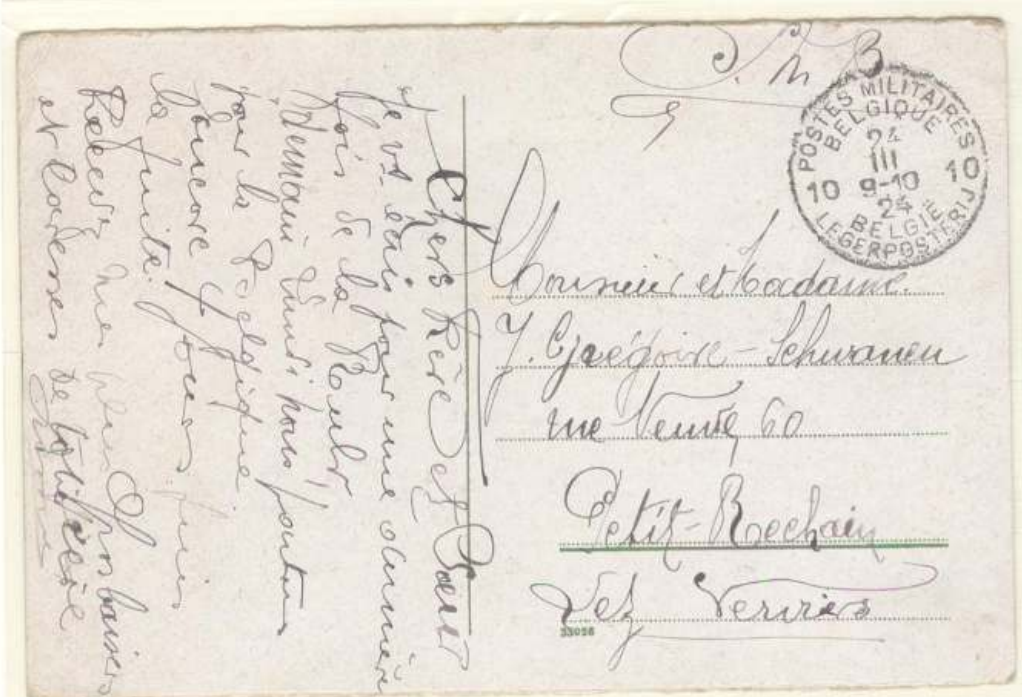 S. M. B
POSTES MILITAIRES
BELGIQUE
24
III
10 9-10 10
24
BELGIË
LEGERPOSTERIJ
Monsieur et Madame
J. Grégoire-Schwanen
rue Neuve 60
Petit-Rechain
Lez Verviers
33056
Chers Père et
Je vs écris pour une dernière
fois de la
Demain lundi nous partons
pour la Belgique
encore 4 jours puis
la fuite.
Recevez mes plus baisers
et caresses de votre